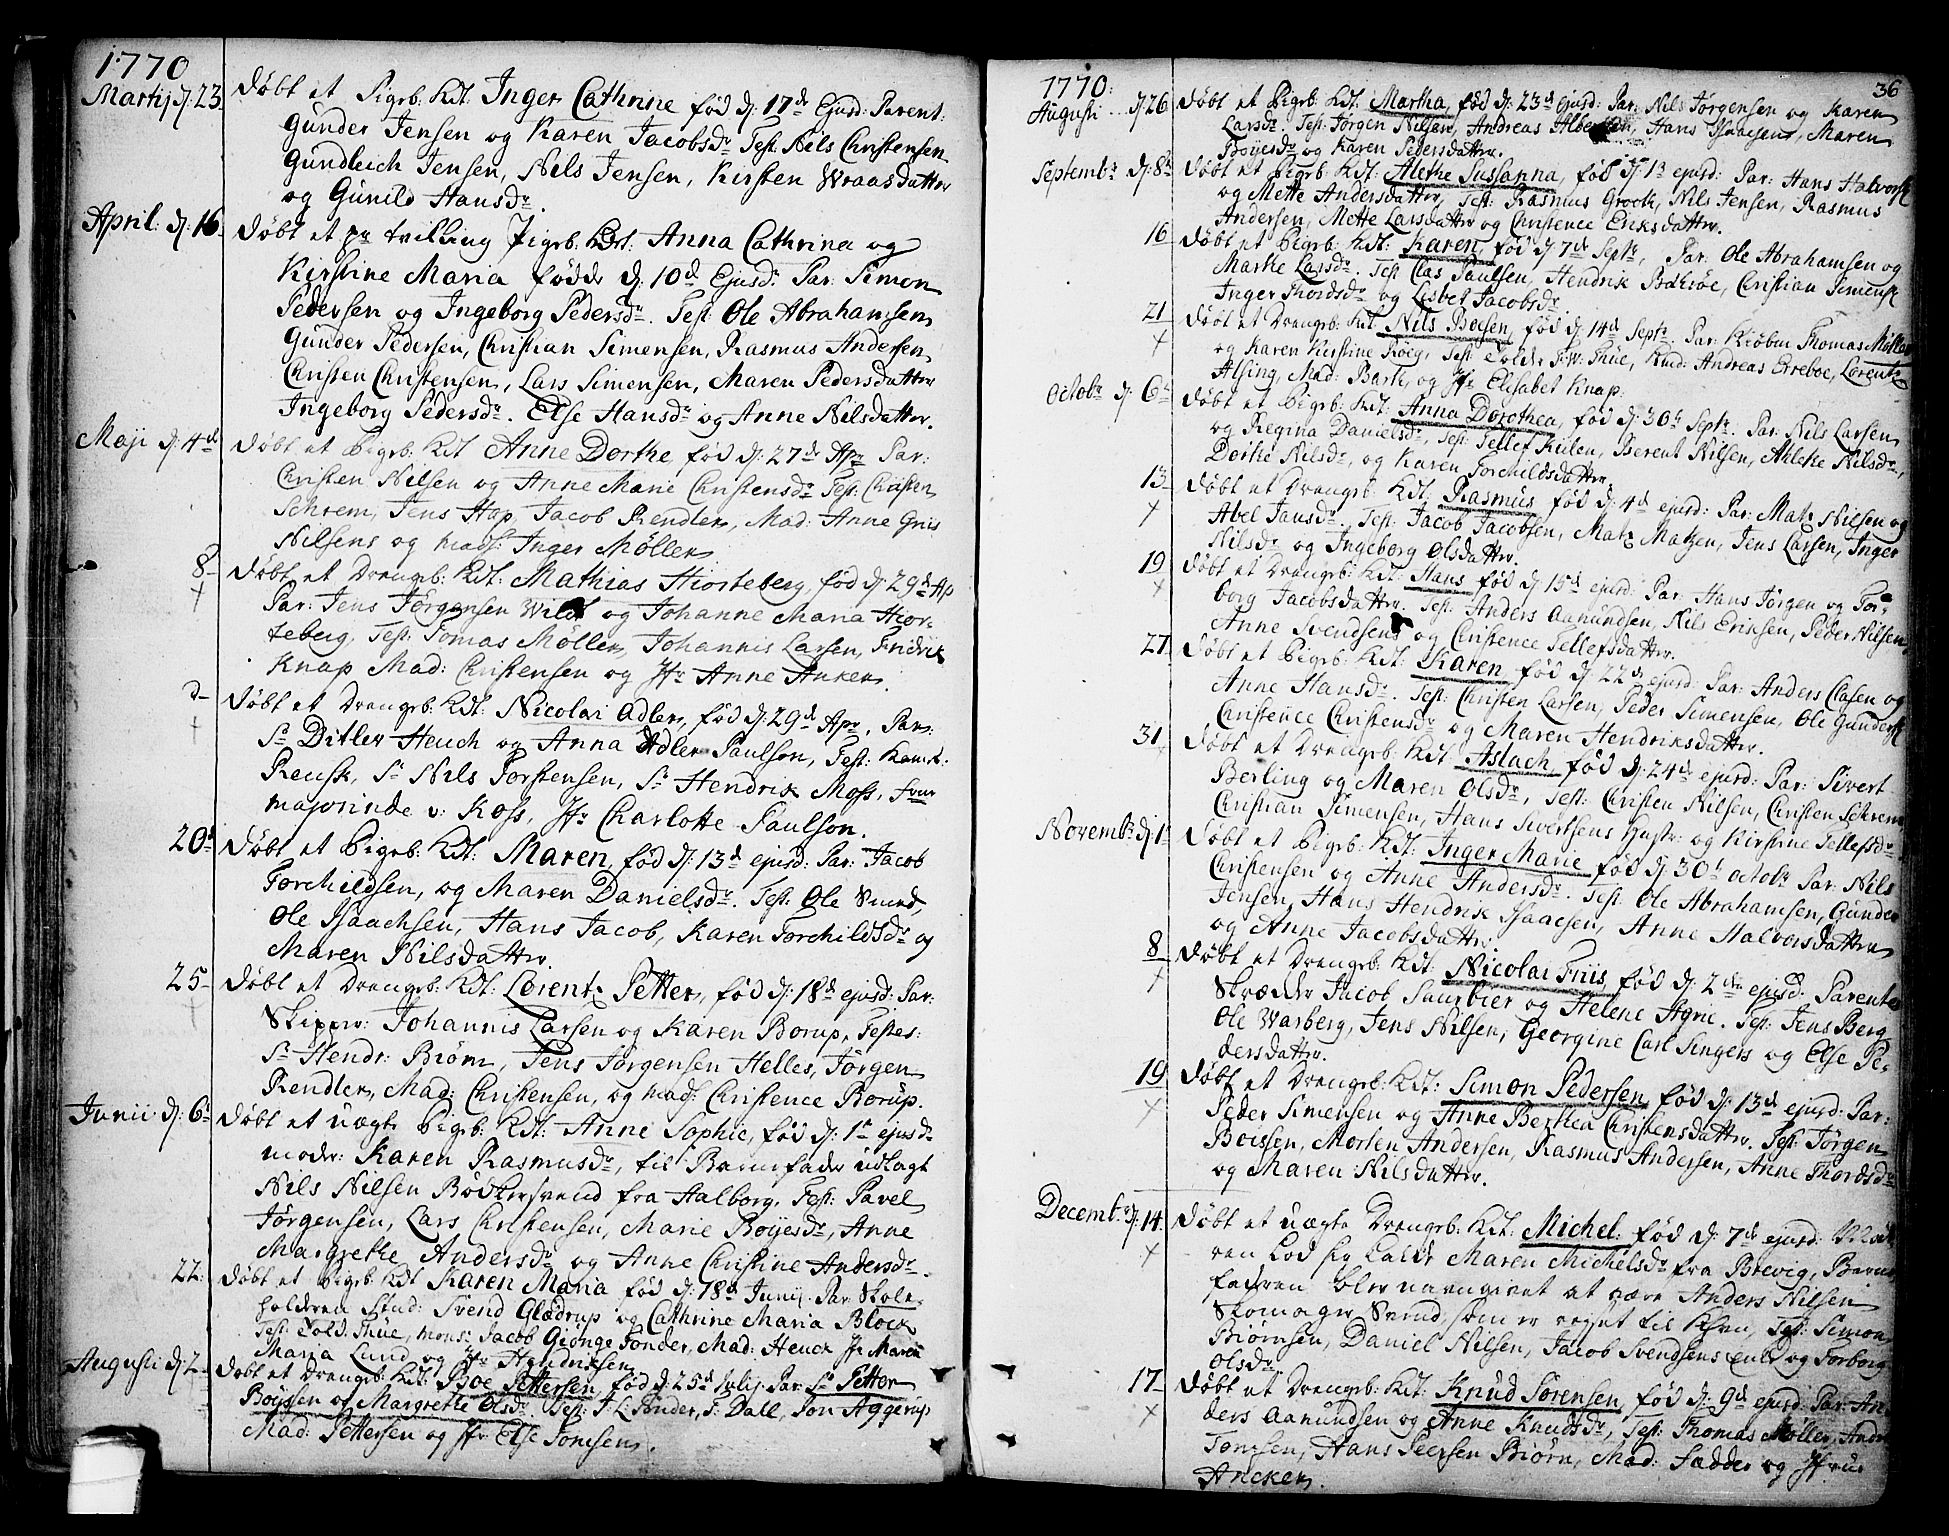 1770
Martij d. 23 døbt et Pigeb: Kdt: Inger Cathrine fød d. 17de Ejusd: Parent:
Gunder Jensen og Karen Jacobsdr. Test: Nils Christensen
Gundleich Jensen, Nils Jensen, Kirsten Wraasdattr
og Gunild Hansdr.
April: d. 16 døbt et pr tvilling Pigeb: Kdt: Anna Cathrina og
Kirstine Maria fødde d. 10d Ejusd: Par: Simon
Pedersen og Ingeborg Pedersdr. Test: Ole Abrahamsen
Gunder Pedersen, Christian Simensen, Rasmus Andersen
Christen Christensen, Lars Simensen, Maren Pedersdattr
Ingeborg Pedersdr. Else Hansdr og Anne Nilsdattr.
Maji d. 4d døbt et Pigeb: Kdt Anne Dorthe fød d. 27de Apr Par:
Christen Nilsen og Anne Marie Christensdr Test: Christen
Schrem, Jens Hap, Jacob Rendler, Mad: Anne Gris
Nilsens og Mads: Inger Møller
8 døbt et Drengeb: Kdt: Mathias Hiorteberg, fød d. 29d Ap
Par: Jens Jørgensen Wildt og Johanne Maria Hior-
teberg, Test: Tomas Møller, Johannis Larsen, Fridrik
Knap Mad: Christensen og Jfr Anne Anker.
d- døbt et Drengeb: Kdt: Nicolai Adler, fød d. 29d Apr, Par:
Sr Ditler Heuch og Anna Adler Paulson, Test: Kamr:
Reusk, Sr Nils Torstensen, Sr Hendrik Moss, Frue
majorinde v: Koss, Jfr Charlotte Paulson.
20 døbt et Pigeb: Kdt: Maren, fød d. 13d ejusd: Par: Jacob
Torchildsen, og Maren Danielsdr. Test: Ole Smed,
Ole Isaachsen, Hans Jacob, Karen Torchildsdr og
Maren Nilsdattr.
25 døbt et Drengeb: Kdt: Lorentz Petter, fød d. 18d ejusd: Par:
Skippr: Johannis Larsen og Karen Borup, Testes:
Sr Hendr: Biørn, Jens Jørgensen Helles, Jørgen
Rendler, Mad: Christensen, og Mads Christence Borup.
Junii d. 6 døbt et uægte Pigeb: Kdt: Anne Sophie, fød d. 1 ejusd
moder: Karen Rasmusdr, til Barnefader udlagt
Nils Nilsen Bødkersvend fra Aalborg, Test: Pavel
Jørgensen, Lars Christensen, Marie Boyesdr, Anne
Margrethe Andersdr og Anne Christine Andersdr.
22. døbt et Pigeb: Kdt Karen Maria fød d. 18d Junij Par Skole-
holderen Stud: Svend Glædrup og Cathrine Maria Block
Test: Told: Thue, Mons: Jacob George Tonder, Mad: Heuch Jfr Maren
Maria Lund og Jfr Hendriksen
Augusti d. 2 døbt et Drengeb: Kdt. Boe Pettersen, fød d. 25d Julij. Par: Sr Petter
Boyssen og Margrethe Olsdr. Test: J. L: Tonder, S: Dall, Jon Aggerup
Mad: Pettersen og Jfr Else Tomsen.
1770. 36
Augusti d. 26 døbt et Pigeb: Kdt: Martha, fød d. 23d ejusd: Par: Nils Jørgensen og Karen
Larsdr. Test: Jørgen Nilsen, Andreas Albertsen, Hans Isaacsen, Maren
Boyesdr og Karen Pedersdattr.
Septembr d. 8 døbt et Pigeb: Kdt: Alethe Sussanna, fød d. 1 ejusd: Par: Hans Halvorsen
og Mette Andersdattr, Test: Rasmus Grook, Nils Jensen, Rasmus
Andersen, Mette Larsdattr og Christence Eriksdattr.
16 døbt et Pigeb: Kdt: Karen, fød d. 7d Septr, Par: Ole Abrahamsen og
Marthe Larsdr. Test Clas Paulsen, Hendrik Bakrøe, Christian Simensen
Inger Thordsdr og Lisbet Jacobsdr.
21 døbt et Drengeb: Kdt: Nils Boesen, fød d. 14d Septr. Par: Kiøbm Thomas Møller
og Karen Kirstine Røeg, Test: Toldr: F. W: Thue, Kmd: Andreas Erreboe, Lorentz
Alsing, Mad: Barth, og Jfr Elisabet Knap.
Octobr d. 6 døbt et Pigeb: Kdt: Anna Dorothea, fød d. 30 Septr. Par: Nils Larsen
og Regina Danielsdr, Test: Tellef Kulen, Berent Nilsen, Ahlethe Nilsdr,
Dorthe Nilsdr, og Karen Torchildsdattr.
13 døbt et Drengeb: Kdt: Rasmus fød d. 4d ejusd: Par: Matz Nilsen og
Abel Jansdr. Test: Jacob Jacobsen, Matz Matzen, Jens Larsen, Inger
Nilsdr og Ingeborg Olsdattr.
19 døbt et Drengeb: Kdt: Hans fød d. 15d ejusd: Par: Hans Jørgen og Tor-
borg Jacobsdattr. Test: Anders Aamundsen, Nils Eriksen, Peder Nilsen,
Anne Svendsens og Christence Tellefsdattr.
27 døbt et Pigeb: Kdt: Karen fød d. 22de ejusd: Par: Anders Clasen og
Anne Hansdr. Test: Christen Larsen, Peder Simensen, Ole Gundersen
Christence Christensdr og Maren Hendriksdattr.
31 døbt et Drengeb: Kdt Aslach, fød d. 24de ejusd: Par: Sivert
Berling og Maren Olsdr, Test: Christen Nilsen, Christen Schrem
Christian Simensen, Hans Sivertsens Hustr: og Kirstine Tellefsdr
Novembr d. 1 døbt et Pigeb: Kdt: Inger Marie fød d. 30 octobr Par: Nils
Christensen og Anne Andersdr. Test: Ole Abrahamsen, Gunder
Jensen, Hans Hendrik Isaacsen, Anne Halvorsdattr
og Anne Jacobsdattr.
8 døbt et Drengeb: Kdt: Nicolai Friis, fød d. 2de ejusd: Parentes
Skræder Jacob Saurbier og Helene Agrie. Test: Jens Berg
Ole Warberg, Jens Nilsen, Georgine Carl Singers og Else Pe-
dersdattr.
19 døbt et Drengeb: Kdt: Simon Pedersen, fød d. 13d ejusd: Par:
Peder Simensen og Anne Berthea Christensdattr. Test: Jørgen
Boissen, Morten Andersen, Rasmus Andersen, Anne Thordsdr
og Maren Nilsdattr.
Decembr d. 14 døbt et uægte Drengeb: Kdt: Michel. fød d. 7de ejusd:
ren lod sig kalde Maren Michelsdr fra Brevig, Barne-
faderen blev navngivet at være Anders Nilsen
Skomager Svend, som er reyst til Khvn, Test: Simon
Biørnsen, Daniel Nilsen, Jacob Svendsens Enke og Torborg
Olsdr.
17 døbt et Drengeb: Kdt: Knud Sørensen, fød d. 9d ejusd: Par: An-
ders Aamundsen og Anne Knudsdr, Test: Thomas Møller, Andr
Tomsen, Hans Peersen Biørn, Mad: Fadder og Jfrue
Ancker.